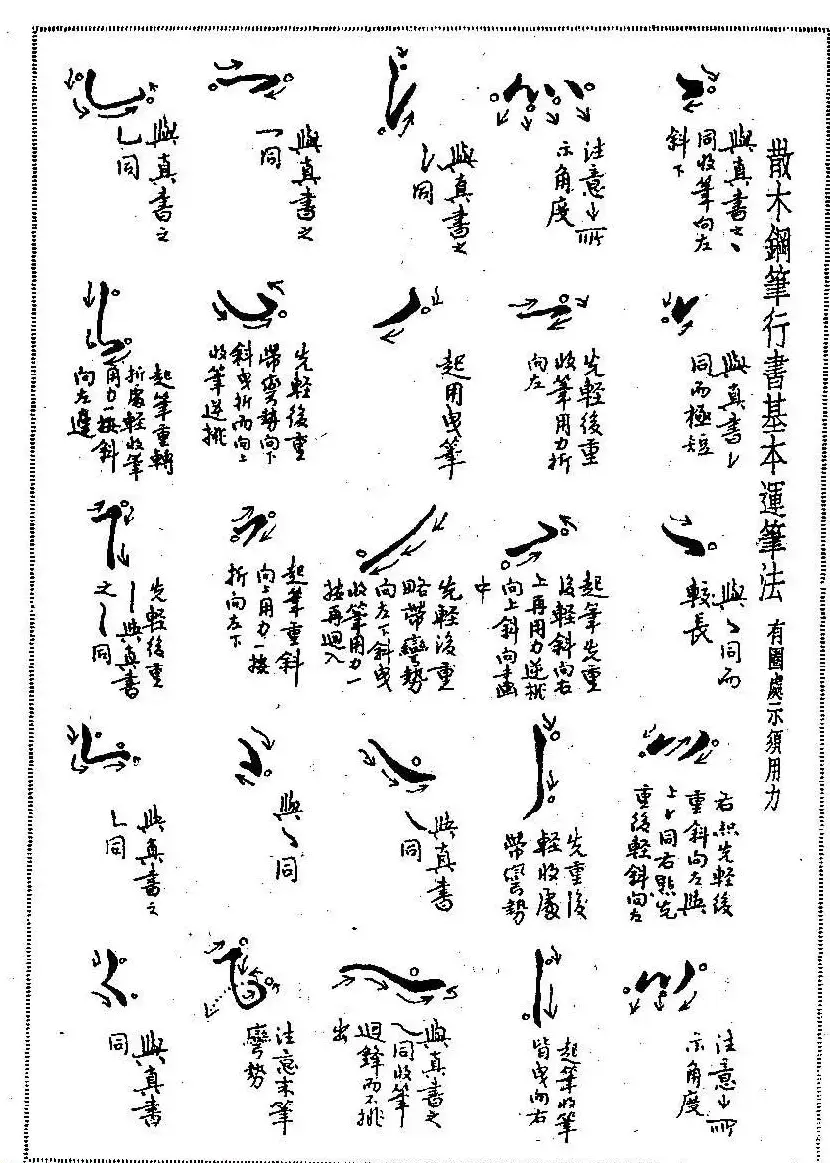 散木鋼筆行書基本運筆法 有圈處示須用力
與真書之丶
同收筆向左
斜下
與真書㇀
同而極短
與㇏同而
較長
右點先輕後
重斜向左與
上㇀同右點先
重後輕斜向左
注意↓所
示角度
注意↓所
示角度
先輕後重
收筆用力折
向左
起筆先重
後輕斜向右
上再用力逆挑
向上斜向畫
中
先重後
輕收處
帶彎勢
起筆收筆
皆曳向右
與真書之
㇙同
起用曳筆
先輕後重
略帶彎勢
向左下斜曳
收筆用力一
按再迴入
與真書
㇏同
與真書之
㇏同收筆
迴鋒而不挑
出
與真書之
㇖同
先輕後重
帶彎勢向下
斜曳折而向上
收筆逆挑
起筆重斜
向上用力一按
折向左下
與㇏同
注意末筆
彎勢
與真書之
㇄同
起筆重轉
折處輕收筆
用力一按斜
向左邊
先輕後重
亅與真書
之亅同
與真書之
㇄同
與真書
同